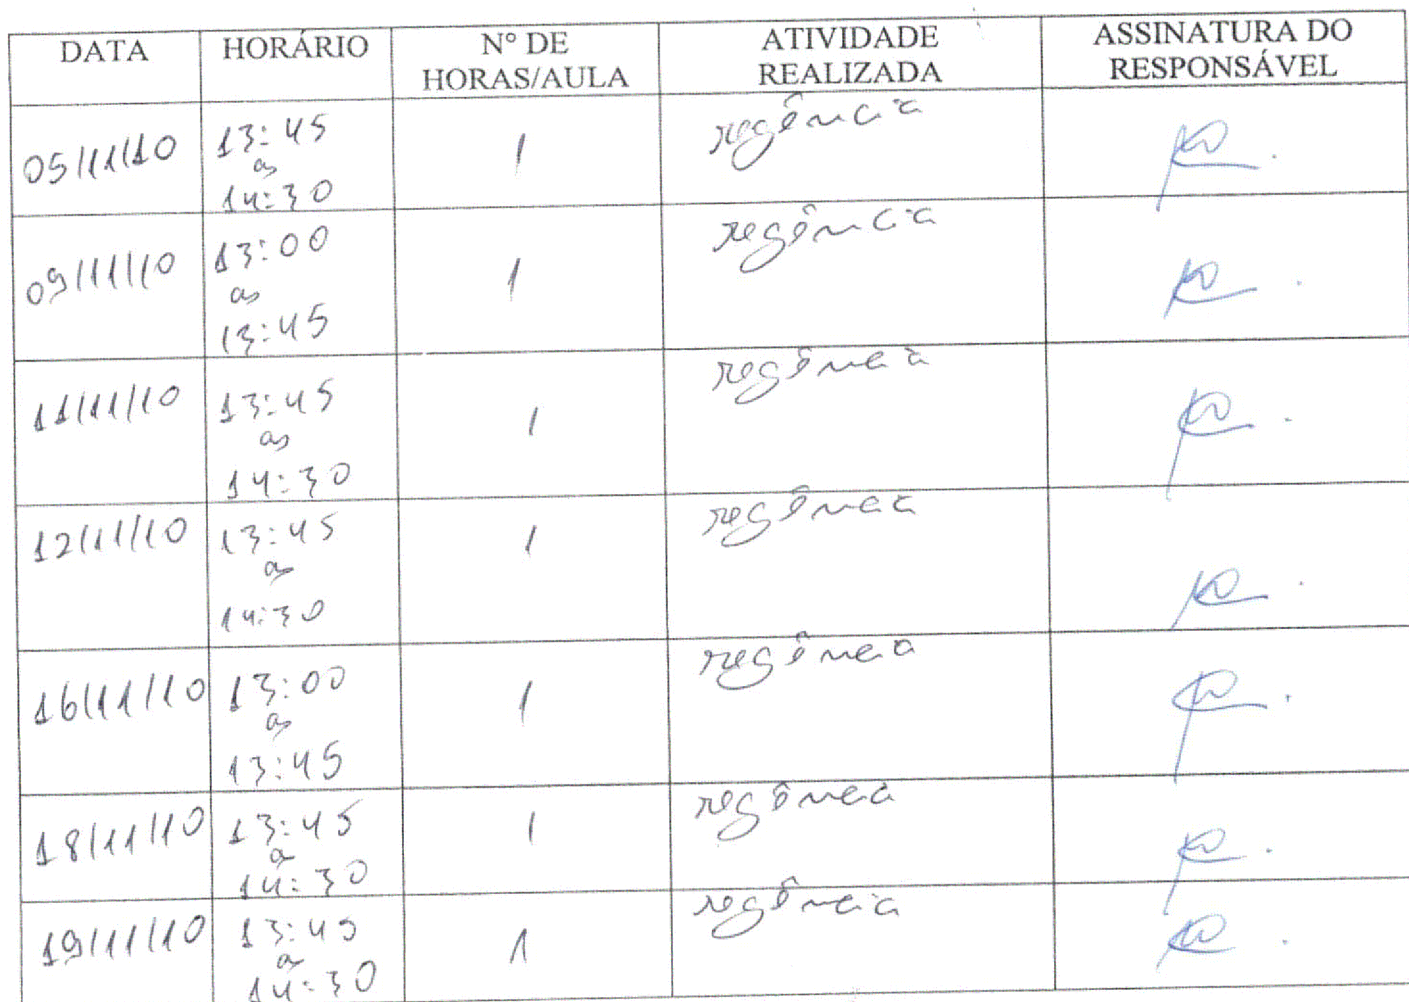 DATA HORÁRIO N° DE HORAS/AULA ATIVIDADE REALIZADA ASSINATURA DO RESPONSÁVEL
05/11/10 13:45 as 14:30 1 regência
09/11/10 13:00 as 13:45 1 regência
11/11/10 13:45 as 14:30 1 regência
12/11/10 13:45 as 14:30 1 regência
16/11/10 13:00 as 13:45 1 regência
18/11/10 13:45 a 14:30 1 regência
19/11/10 13:45 a 14:30 1 regência